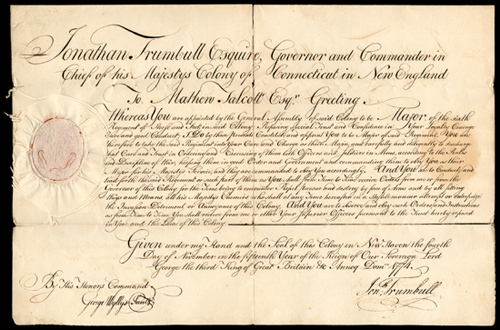 Jonathan Trumbull Esquire, Governor and Commander in
Chief of his Majestys Colony of Connecticut in New England
To Mathew Talcott Esqr. Greeting.
Whereas You are appointed by the General Assembly of said Colony to be Major of the sixth
Regiment of Horse and Foot in said Colony. Reposing special Trust and Confidence in Your Loyalty Courage
and good Conduct, I Do by these Presents Constitute and appoint You to be Major of said Regiment, You are
therefore to take the said Regiment into Your Care and Charge as their Major, and carefully and diligently to discharge
that Care and Trust in Ordering and Exercising of them both Officers and Soldiers in Arms according to the Rules
and Discipline of War, keeping them in good Order and Government and commanding them to obey You as their
Major for his Majestys Service, and they are commanded to obey You accordingly. And You are to Conduct and
You shall from Time to Time receive Orders from me or from the
Governor of this Colony for the Time being to encounter Repel pursue and destroy by force of Arms and by all fitting
Ways and Means, all his Majestys Enemies who shall at any Time hereafter in a Hostile manner attempt or enterprize
the Invasion Detriment or Annoyance of this Colony. And You are to observe and obey such Orders and Instructions
as from Time to Time You shall receive from me or other Your Superior Officers pursuant to the Trust hereby reposed
in You and the Laws of this Colony.
Given under my Hand and the Seal of this Colony in New Haven the fourth
Day of November in the fifteenth Year of the Reign of Our Sovereign Lord
George the third King of Great Britain &c Annoq Domi 1774.
By His Honors Command
George Wyllys Secret
Jonth Trumbull